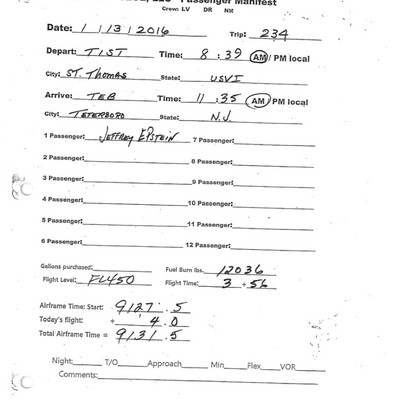 LLC Passenger Manifest
Crew: LV DR NM
Date: 1/13/2016 Trip: 234
Depart: TIST Time: 8:39 AM/ PM local
City: ST. Thomas State: USVI
Arrive: TEB Time: 11:35 AM PM local
City: TETERBORO State: N.J.
1 Passenger: JEFFREY EPSTEIN 7 Passenger:
2 Passenger: 8 Passenger:
3 Passenger: 9 Passenger:
4 Passenger: 10 Passenger:
5 Passenger: 11 Passenger:
6 Passenger: 12 Passenger:
Gallons purchased: Fuel Burn lbs. 12036
Flight Level: FL450 Flight Time: 3 + 56
Airframe Time: Start: 9127.5
Today's flight: + 4.0
Total Airframe Time = 9131.5
Night: T/O Approach Min Flex VOR
Comments: